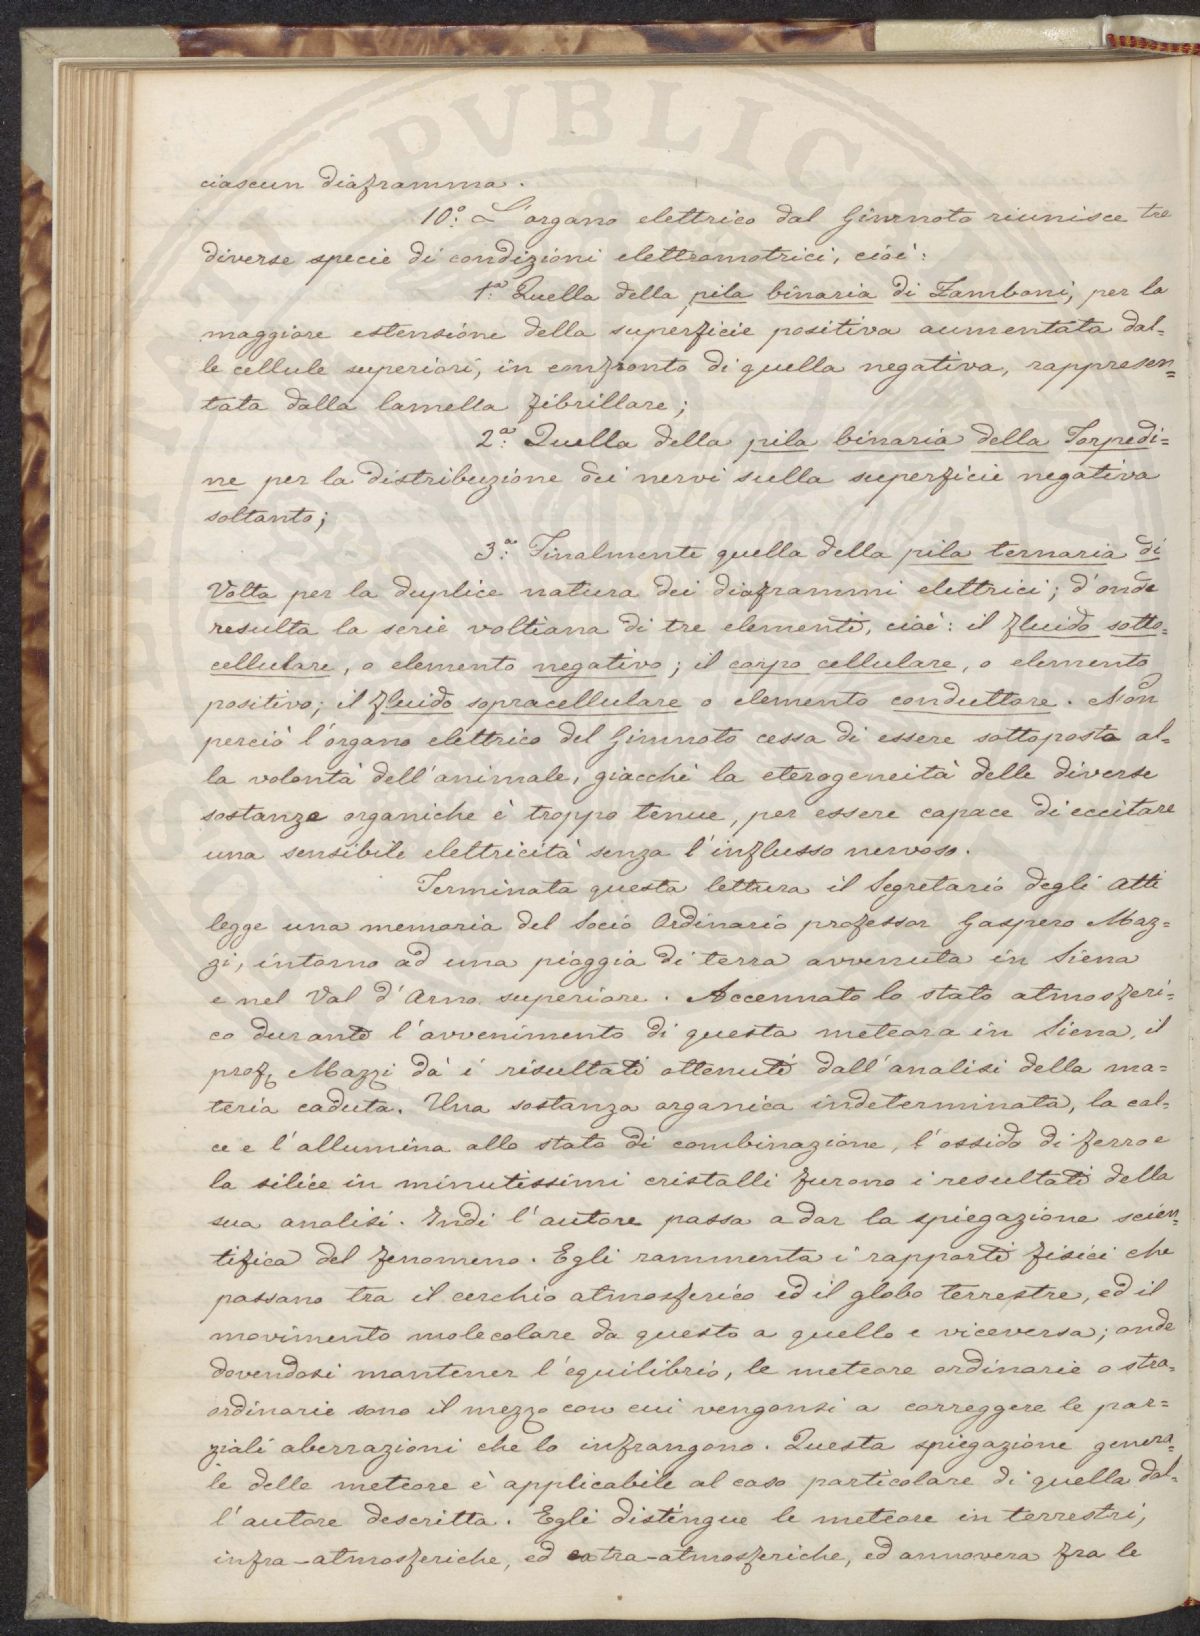 ciascun diaframma.
10.° L'organo elettrico dal Gimnoto riunisce tre
diverse specie di condizioni elettromotrici, cioè:
1.ª Quella della pila binaria di Zamboni, per la
maggiore estensione della superficie positiva aumentata dal=
le cellule superiori, in confronto di quella negativa, rappresen=
tata dalla lamella fibrillare;
2.ª Quella della pila binaria della Torpedi=
ne per la distribuzione dei nervi sulla superficie negativa
soltanto;
3.ª Finalmente quella della pila ternaria di
Volta per la duplice natura dei diaframmi elettrici; d'onde
resulta la serie voltiana di tre elementi, cioè: il fluido sotto=
cellulare, o elemento negativo; il corpo cellulare, o elemento
positivo; il fluido sopracellulare o elemento conduttore. Non
perciò l'organo elettrico del Gimnoto cessa di essere sottoposto al=
la volontà dell'animale, giacchè la eterogeneità delle diverse
sostanze organiche è troppo tenue, per essere capace di eccitare
una sensibile elettricità senza l'influsso nervoso.
Terminata questa lettura il Segretario degli Atti
legge una memoria del Socio Ordinario professor Gaspero Maz=
zi, intorno ad una pioggia di terra avvenuta in Siena
e nel Val d'Arno superiore. Accennato lo stato atmosferi=
co durante l'avvenimento di questa meteora in Siena, il
prof. Mazzi dà i resultati ottenuti dall'analisi della ma=
teria caduta. Una sostanza organica indeterminata, la cal=
ce e l'allumina allo stato di combinazione, l'ossido di ferro e
la silice in minutissimi cristalli furono i resultati della
sua analisi. Indi l'autore passa a dar la spiegazione scien=
tifica del fenomeno. Egli rammenta i rapporti fisici che
passano tra il cerchio atmosferico ed il globo terrestre, ed il
movimento molecolare da questo a quello e viceversa; onde
dovendosi mantener l'equilibrio, le meteore ordinarie o stra=
ordinarie sono il mezzo con cui vengonsi a correggere le par=
ziali aberrazioni che lo infrangono. Questa spiegazione genera=
le delle meteore è applicabile al caso particolare di quella dal=
l'autore descritta. Egli distingue le meteore in terrestri,
infra-atmosferiche, ed extra-atmosferiche, ed annovera fra le